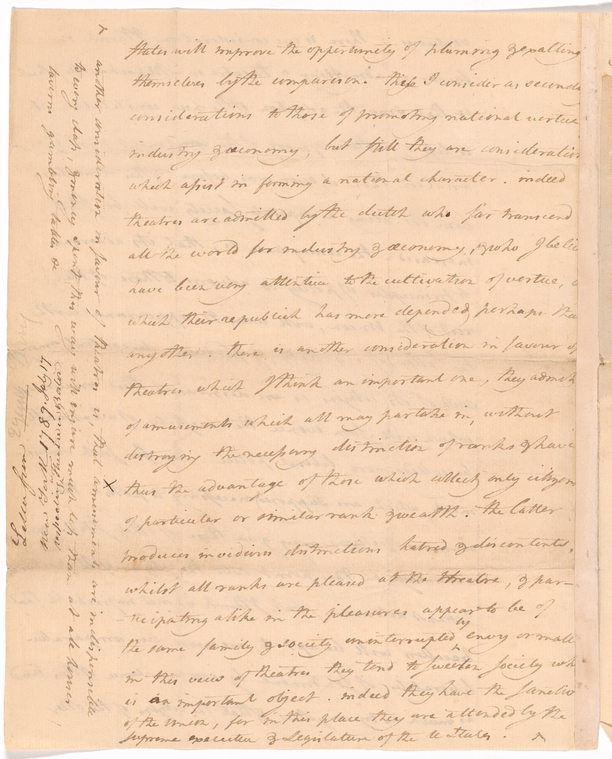 states will improve the opportunity of pluming & exalting
themselves by the comparison. these I consider as secondary
considerations to those of promoting national vertue
industry & œconomy, but still they are considerations
which assist in forming a national character. indeed
theatres are admitted by the dutch who far transcend
all the world for industry & œconomy, & who I believe
have been very attentive to the cultivation of vertue,
which their republick has more depended perhaps than
any other. there is another consideration in favour of
theatres which I think an important one, they admit
of amusements which all may partake in, without
destroying the necessary distinction of ranks & have
thus the advantage of those which collect only citizens
of particular or similar rank & wealth. the latter
produces invidious distinctions hatred & discontents,
whilst all ranks are pleased at the theatre, & par-
ticipating alike in the pleasures appear to be of
the same family & society uninterrupted by envy or malice
in this view of theatres they tend to sweeten society which
is an important object. indeed they have the sanction
of the union, for in this place they are attended by the
supreme executive & Legislature of the U States.
another consideration in favour of theatres is, that amusements are indispensible
to every class, & money spent this way with injure much less than at all hours
tavern gambling
Letter from